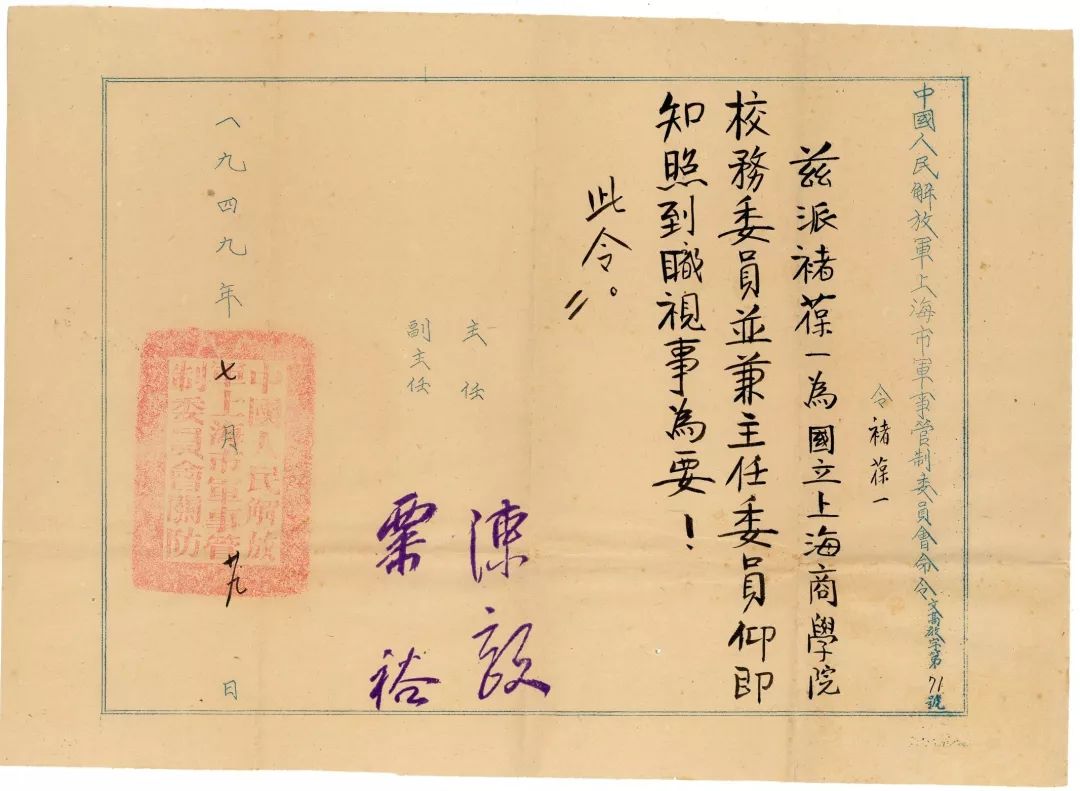 中國人民解放軍上海市軍事管制委員會命令
文高教字第71號
令 褚葆一
茲派褚葆一為國立上海商學院
校務委員並兼主任委員仰即
知照到職視事為要！
此令。
主任 陳毅
副主任 粟裕
一九四九年七月廿九日
中國人民解放
軍上海市軍事管
制委員會關防